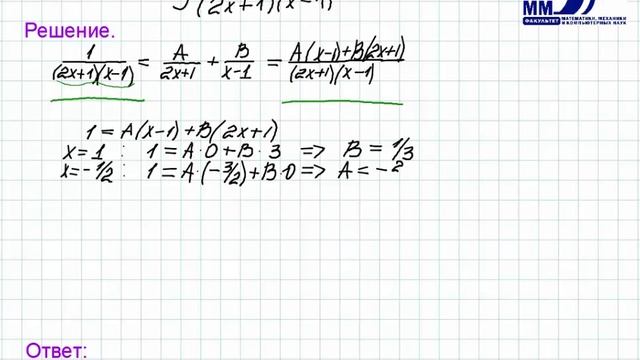 ∫ (2x+1)(x-1)
ММ
ФАКУЛЬТЕТ МАТЕМАТИКИ, МЕХАНИКИ И КОМПЬЮТЕРНЫХ НАУК
Решение.
1/((2x+1)(x-1)) = A/(2x+1) + B/(x-1) = (A(x-1)+B(2x+1))/((2x+1)(x-1))
1 = A(x-1) + B(2x+1)
x=1 : 1 = A·0 + B·3 => B = 1/3
x=-1/2 : 1 = A·(-3/2) + B·0 => A = -2
Ответ: